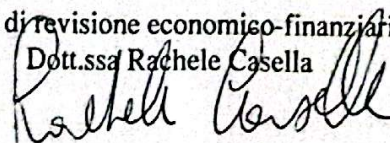 di revisione economico-finanziari
Dott.ssa Rachele Casella
Rachele Casella